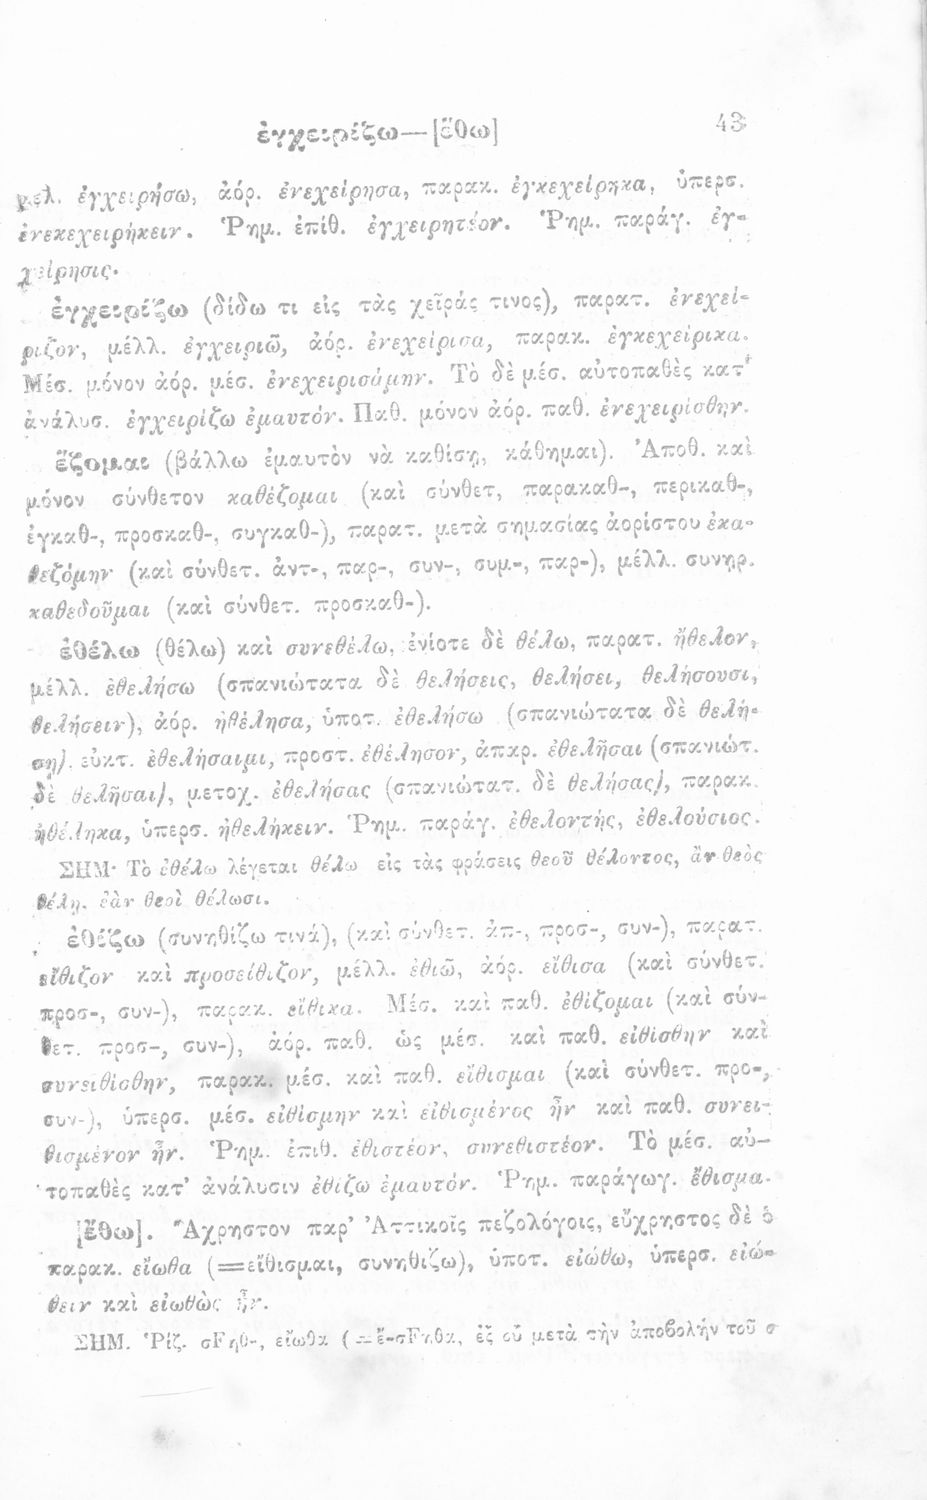 ἐγχειρίζω—[ἔθω] 43
μέλ. ἐγχειρήσω, ἀόρ. ἐνεχείρησα, παρακ. ἐγκεχείρηκα, ὑπερσ.
ἐνεκεχειρήκειν. Ῥημ. ἐπίθ. ἐγχειρητέον. Ῥημ. παράγ. ἐγ-
χείρησις.
ἐγχειρίζω (δίδω τι εἰς τὰς χεῖράς τινος), παρατ. ἐνεχεί-
ριζον, μέλλ. ἐγχειριῶ, ἀόρ. ἐνεχείρισα, παρακ. ἐγκεχείρικα.
Μέσ. μόνον ἀόρ. μέσ. ἐνεχειρισάμην. Τὸ δὲ μέσ. αὐτοπαθὲς κατ'
ἀνάλυσ. ἐγχειρίζω ἐμαυτόν. Παθ. μόνον ἀόρ. παθ. ἐνεχειρίσθην.
ἕζομαι (βάλλω ἐμαυτὸν νὰ καθίσῃ, κάθημαι). Ἀποθ. καὶ
μόνον σύνθετον καθέζομαι (καὶ σύνθετ, παρακαθ-, περικαθ-,
ἐγκαθ-, προσκαθ-, συγκαθ-), παρατ. μετὰ σημασίας ἀορίστου ἐκα-
θεζόμην (καὶ σύνθετ. ἀντ-, παρ-, συν-, συμ-, παρ-), μέλλ. συνηρ.
καθεδοῦμαι (καὶ σύνθετ. προσκαθ-).
ἐθέλω (θέλω) καὶ συνεθέλω, ἐνίοτε δὲ θέλω, παρατ. ἤθελον,
μέλλ. ἐθελήσω (σπανιώτατα δὲ θελήσεις, θελήσει, θελήσουσι,
θελήσειν), ἀόρ. ἠθέλησα, ὑποτ. ἐθελήσω (σπανιώτατα δὲ θελή-
σῃ). εὐκτ. ἐθελήσαιμι, προστ. ἐθέλησον, ἀπαρ. ἐθελῆσαι (σπανιώτ.
δὲ θελῆσαι), μετοχ. ἐθελήσας (σπανιώτατ. δὲ θελήσας), παρακ.
ἠθέληκα, ὑπερσ. ἠθελήκειν. Ῥημ. παράγ. ἐθελοντής, ἐθελούσιος.
ΣΗΜ· Τὸ ἐθέλω λέγεται θέλω εἰς τὰς φράσεις θεοῦ θέλοντος, ἂν θεὸς
θέλῃ, ἐὰν θεοὶ θέλωσι.
ἐθίζω (συνηθίζω τινά), (καὶ σύνθετ. ἀπ-, προσ-, συν-), παρατ.
εἴθιζον καὶ προσείθιζον, μέλλ. ἐθιῶ, ἀόρ. εἴθισα (καὶ σύνθετ.
προσ-, συν-), παρακ. εἴθικα. Μέσ. καὶ παθ. ἐθίζομαι (καὶ σύν-
θετ. προσ-, συν-), ἀόρ. παθ. ὡς μέσ. καὶ παθ. εἰθίσθην καὶ
συνειθίσθην, παρακ. μέσ. καὶ παθ. εἴθισμαι (καὶ σύνθετ. προ-,
συν-), ὑπερσ. μέσ. εἰθίσμην καὶ εἰθισμένος ἦν καὶ παθ. συνει-
θισμένον ἦν. Ῥημ. ἐπιθ. ἐθιστέον, συνεθιστέον. Τὸ μέσ. αὐ-
τοπαθὲς κατ' ἀνάλυσιν ἐθίζω ἐμαυτόν. Ῥημ. παράγωγ. ἔθισμα.
[ἔθω]. Ἄχρηστον παρ' Ἀττικοῖς πεζολόγοις, εὔχρηστος δὲ ὁ
παρακ. εἴωθα (=εἴθισμαι, συνηθίζω), ὑποτ. εἰώθω, ὑπερσ. εἰώ-
θειν καὶ εἰωθὼς ἦν.
ΣΗΜ. Ῥίζ. σFηθ-, εἴωθα (=ἔ-σFηθα, ἐξ οὗ μετὰ τὴν ἀποβολὴν τοῦ σ